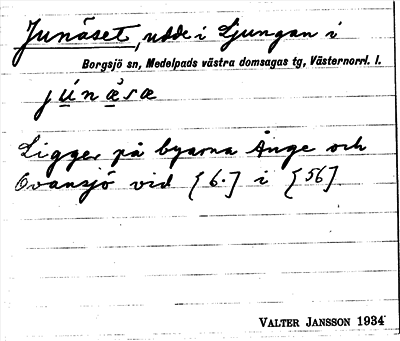 Junäset, udde i Ljungan i
Borgsjö sn, Medelpads västra domsagas tg, Västernorrl. l.
júnæ̀sæ
Ligger på byarna Ånge och
Ovansjö vid [6.] i [56]
VALTER JANSSON 1934